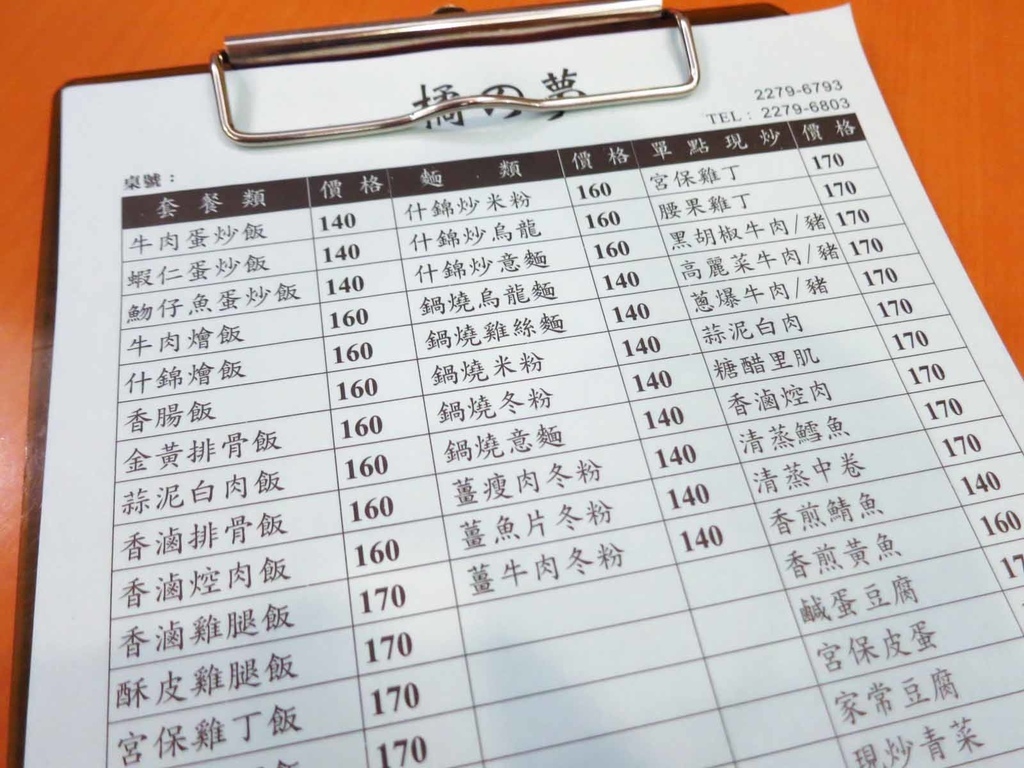 橘の夢
2279-6793
TEL：2279-6803
桌號：
套餐類 價格 麵類 價格 單點現炒 價格
牛肉蛋炒飯 140 什錦炒米粉 160 宮保雞丁 170
蝦仁蛋炒飯 140 什錦炒烏龍 160 腰果雞丁 170
魩仔魚蛋炒飯 140 什錦炒意麵 160 黑胡椒牛肉/豬 170
牛肉燴飯 160 鍋燒烏龍麵 140 高麗菜牛肉/豬 170
什錦燴飯 160 鍋燒雞絲麵 140 蔥爆牛肉/豬 170
香腸飯 160 鍋燒米粉 140 蒜泥白肉 170
金黃排骨飯 160 鍋燒冬粉 140 糖醋里肌 170
蒜泥白肉飯 160 鍋燒意麵 140 香滷焢肉 170
香滷排骨飯 160 薑瘦肉冬粉 140 清蒸鱈魚 170
香滷焢肉飯 160 薑魚片冬粉 140 清蒸中卷 170
香滷雞腿飯 170 薑牛肉冬粉 140 香煎鯖魚 140
酥皮雞腿飯 170 香煎黃魚 160
宮保雞丁飯 170 鹹蛋豆腐
飯 170 宮保皮蛋
家常豆腐
現炒青菜